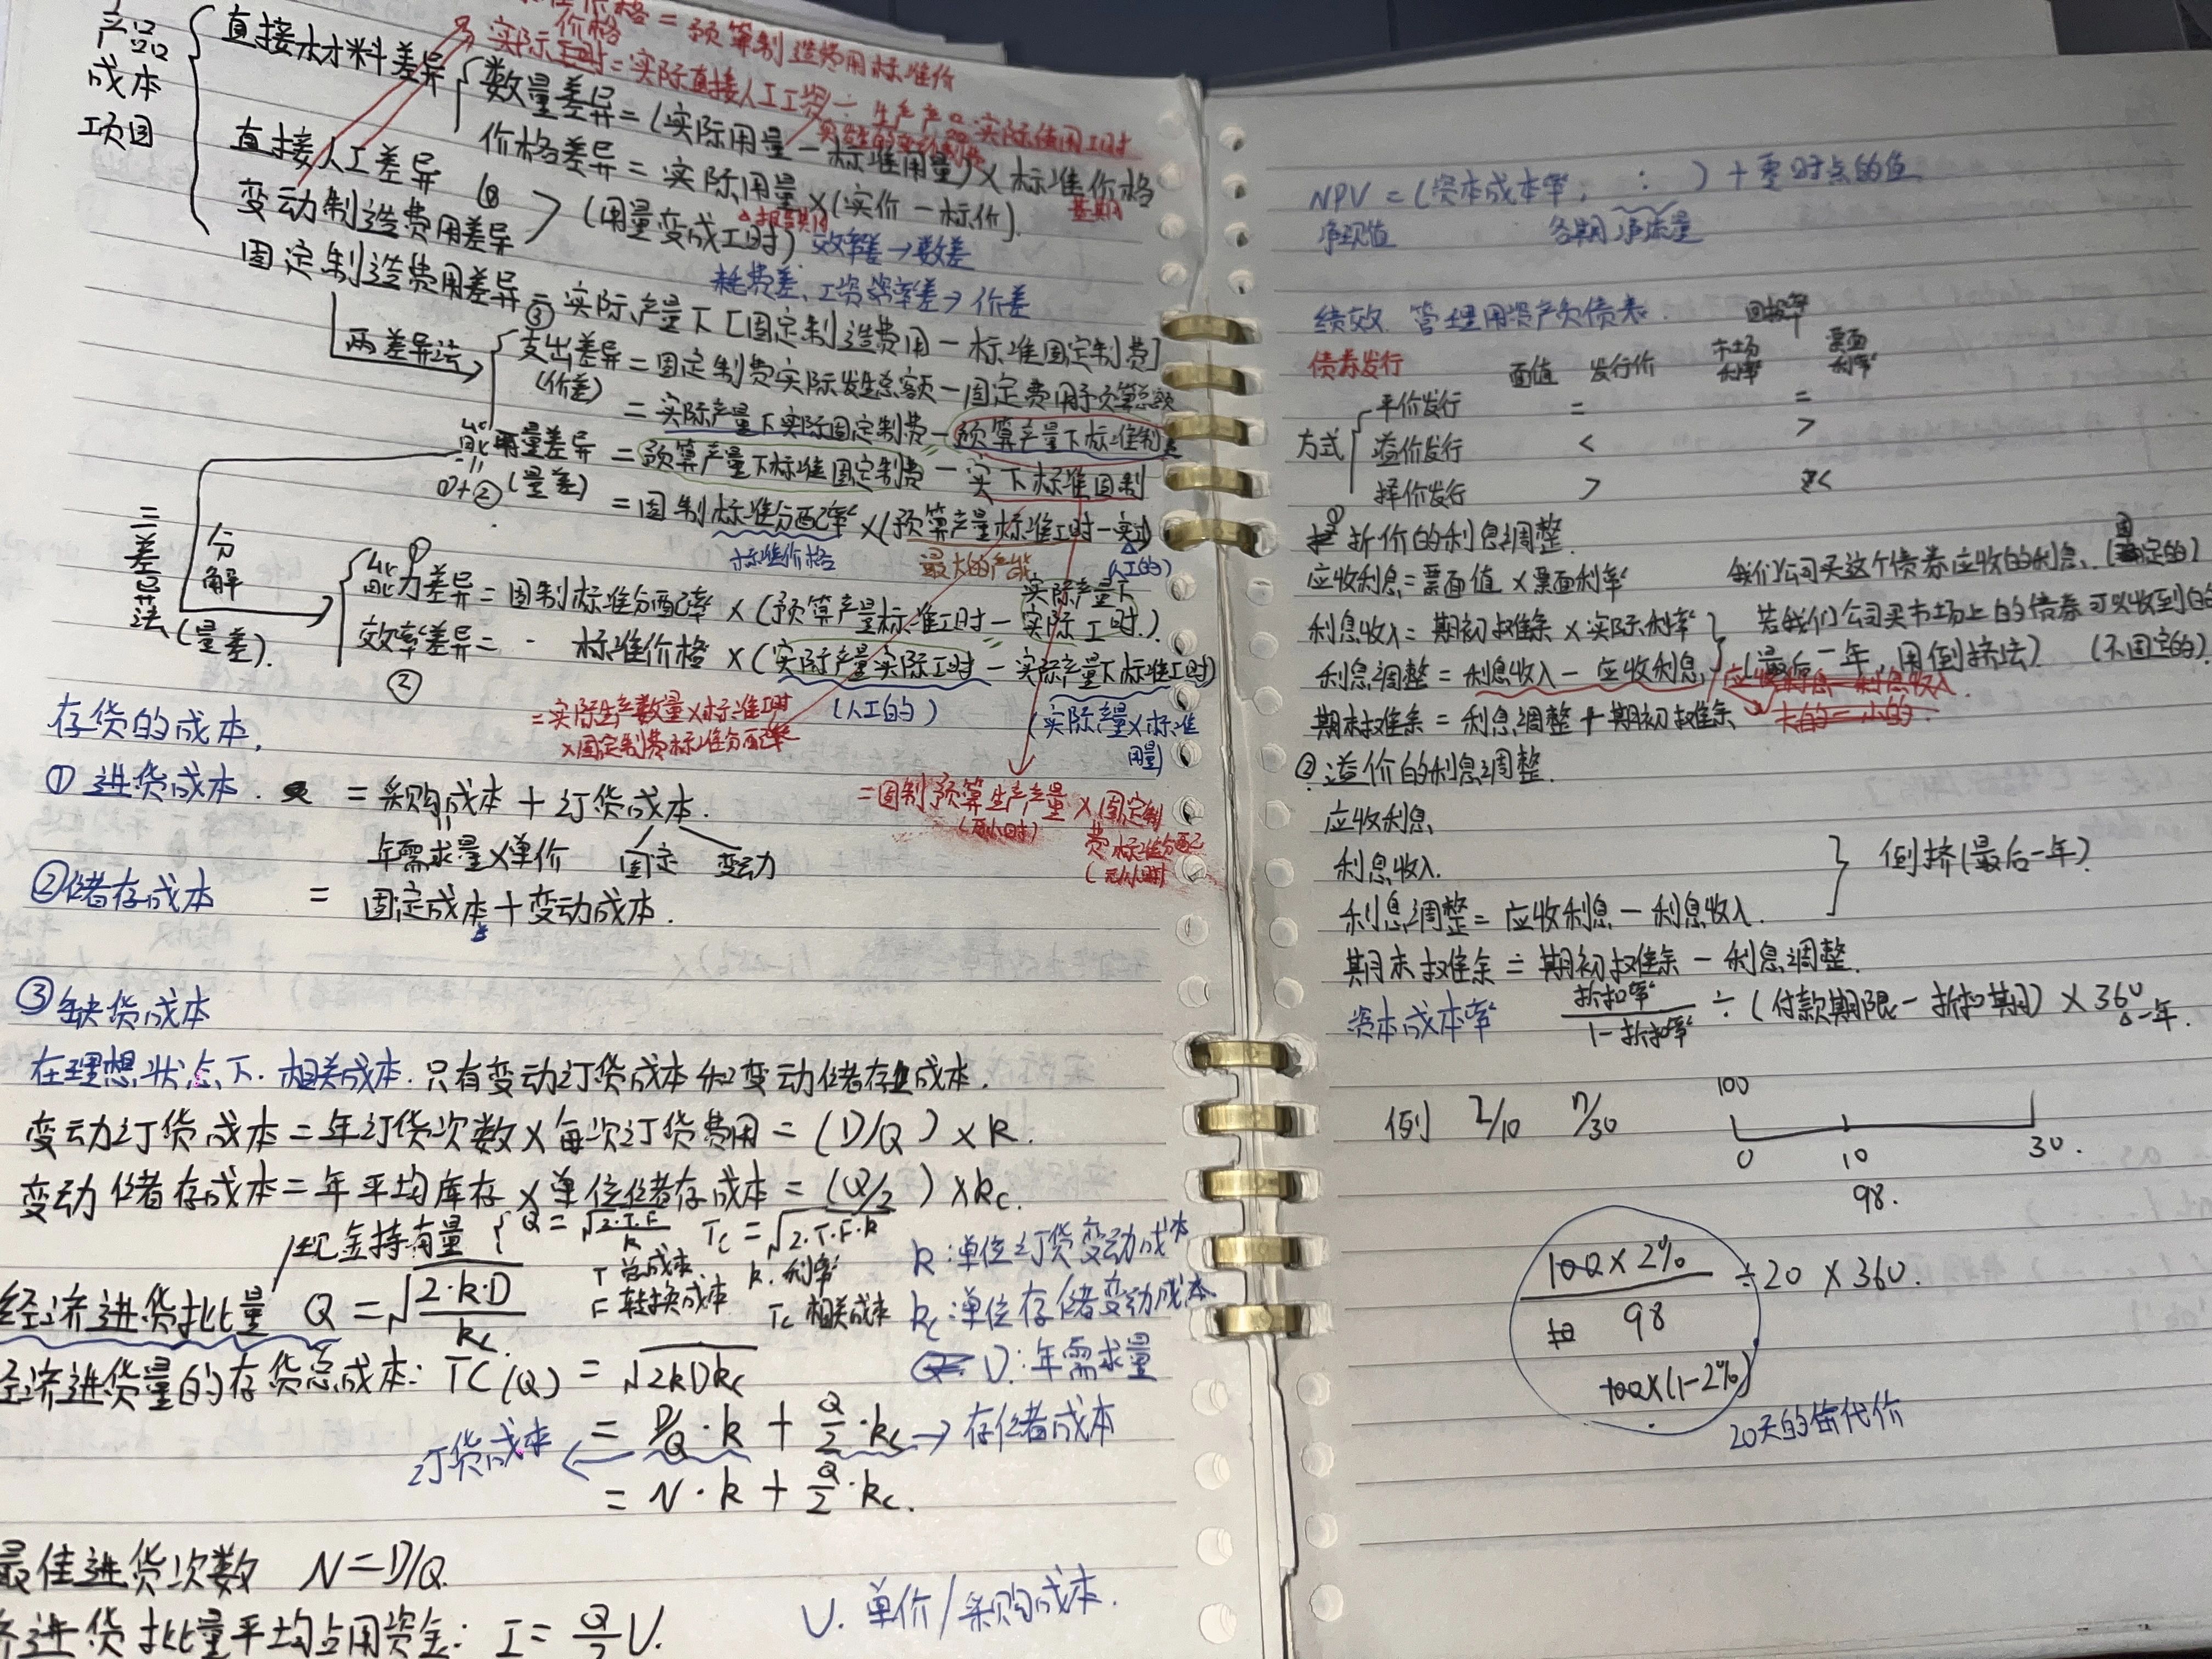 产品成本项目
直接材料差异
数量差异=(实际用量-标准用量)×标准价格
价格差异=实际用量×(实价-标价)
直接人工差异
变动制造费用差异
(用量变成工时)
效率差→数差
耗费差,工资率差→价差
固定制造费用差异=实际产量下[固定制造费用-标准固定制费]
价格=预算制造费用标准价
实际工时=实际直接人工工资÷
两差异法
支出差异=固定制费实际发生总额-固定费用预算总额
(价差)
=实际产量下实际固定制费-预算产量下标准制
量差异=预算产量下标准固定制费-实下标准固制
①+②(量差)
=固制标准分配率×(预算产量标准工时-实
标准价格
最大的产能
(人工的)
三差异法
分解
(量差).
能力差异=固制标准分配率×(预算产量标准工时-实际产量下实际工时.)
效率差异= 标准价格×(实际产量实际工时-实际产量下标准工时)
②
=实际生产数量×标准工时
×固定制费标准分配率
(人工的)
(实际产量×标准用量)
=固制预算生产产量×固定制费标准分配
存货的成本,
①进货成本. =采购成本+订货成本.
年需求量×单价 固定 变动
②储存成本 =固定成本+变动成本.
③缺货成本
在理想状态下.相关成本.只有变动订货成本和变动储存成本.
变动订货成本=年订货次数×每次订货费用=(D/Q)×k.
变动储存成本=年平均库存×单位储存成本=(Q/2)×kc.
现金持有量 Q=√2·T·F/k Tc=√2·T·F·k
T 总成本 k.利率
F 转换成本 Tc 相关成本
k:单位订货变动成本
kc:单位存储变动成本
D:年需求量
经济进货批量 Q=√2·k·D/kc
经济进货量的存货总成本:TC(Q)=√2kDkc
订货成本 ← =D/Q·k+Q/2·kc → 存储成本
=N·k+Q/2·kc.
最佳进货次数 N=D/Q.
进货批量平均占用资金: I=Q/2 U.
U.单价/采购成本.
NPV=(资本成本率, : )+零时点的值
净现值 各期净流量
绩效.管理用资产负债表. 回报率
债券发行 面值 发行价 市场利率 票面利率
方式
平价发行 = =
溢价发行 < >
择价发行 > <
① 折价的利息调整.
应收利息=票面值×票面利率 我们公司买这个债券应收的利息.(固定的)
利息收入=期初摊余×实际利率 若我们公司买市场上的债券可以收到的
利息调整=利息收入-应收利息, (最后一年,用倒挤法) (不固定的)
应收利息-利息收入.
期末摊余=利息调整+期初摊余 大的-小的.
②溢价的利息调整.
应收利息
利息收入.
利息调整=应收利息-利息收入.
倒挤(最后一年).
期末摊余=期初摊余-利息调整.
资本成本率 折扣率/1-折扣率÷(付款期限-折扣期)×360 一年.
例 2/10 n/30
100
0 10 30.
98.
100×2%/98÷20×360.
100×(1-2%)
20天的借代价